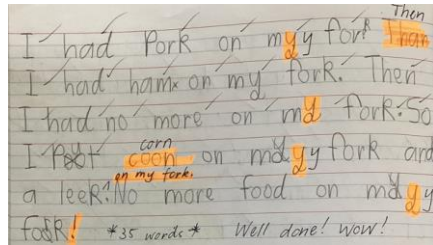 Then
I had Pork on my y fork Than
I had ham on my fork. Then
I had no more on my fork. So
corn
I Put coon on my y fork and
on my fork.
a leek. No more food on my y
fork! *35 words* Well done! Wow!